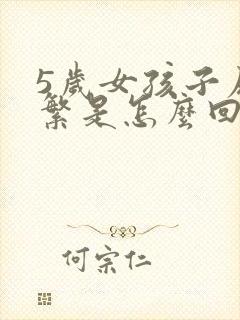 5歲女孩子
繁是怎麼回
何宗仁